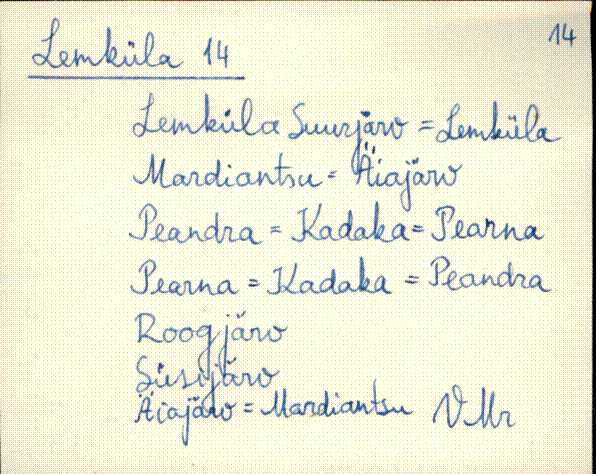 14
Lemküla 14
Lemküla Suurjärv = Lemküla
Mardiantsu = Äiajärv
Peandra = Kadaka = Pearna
Pearna = Kadaka = Peandra
Roogjärv
Süsijärv
Äiajärv = Mardiantsu VMr